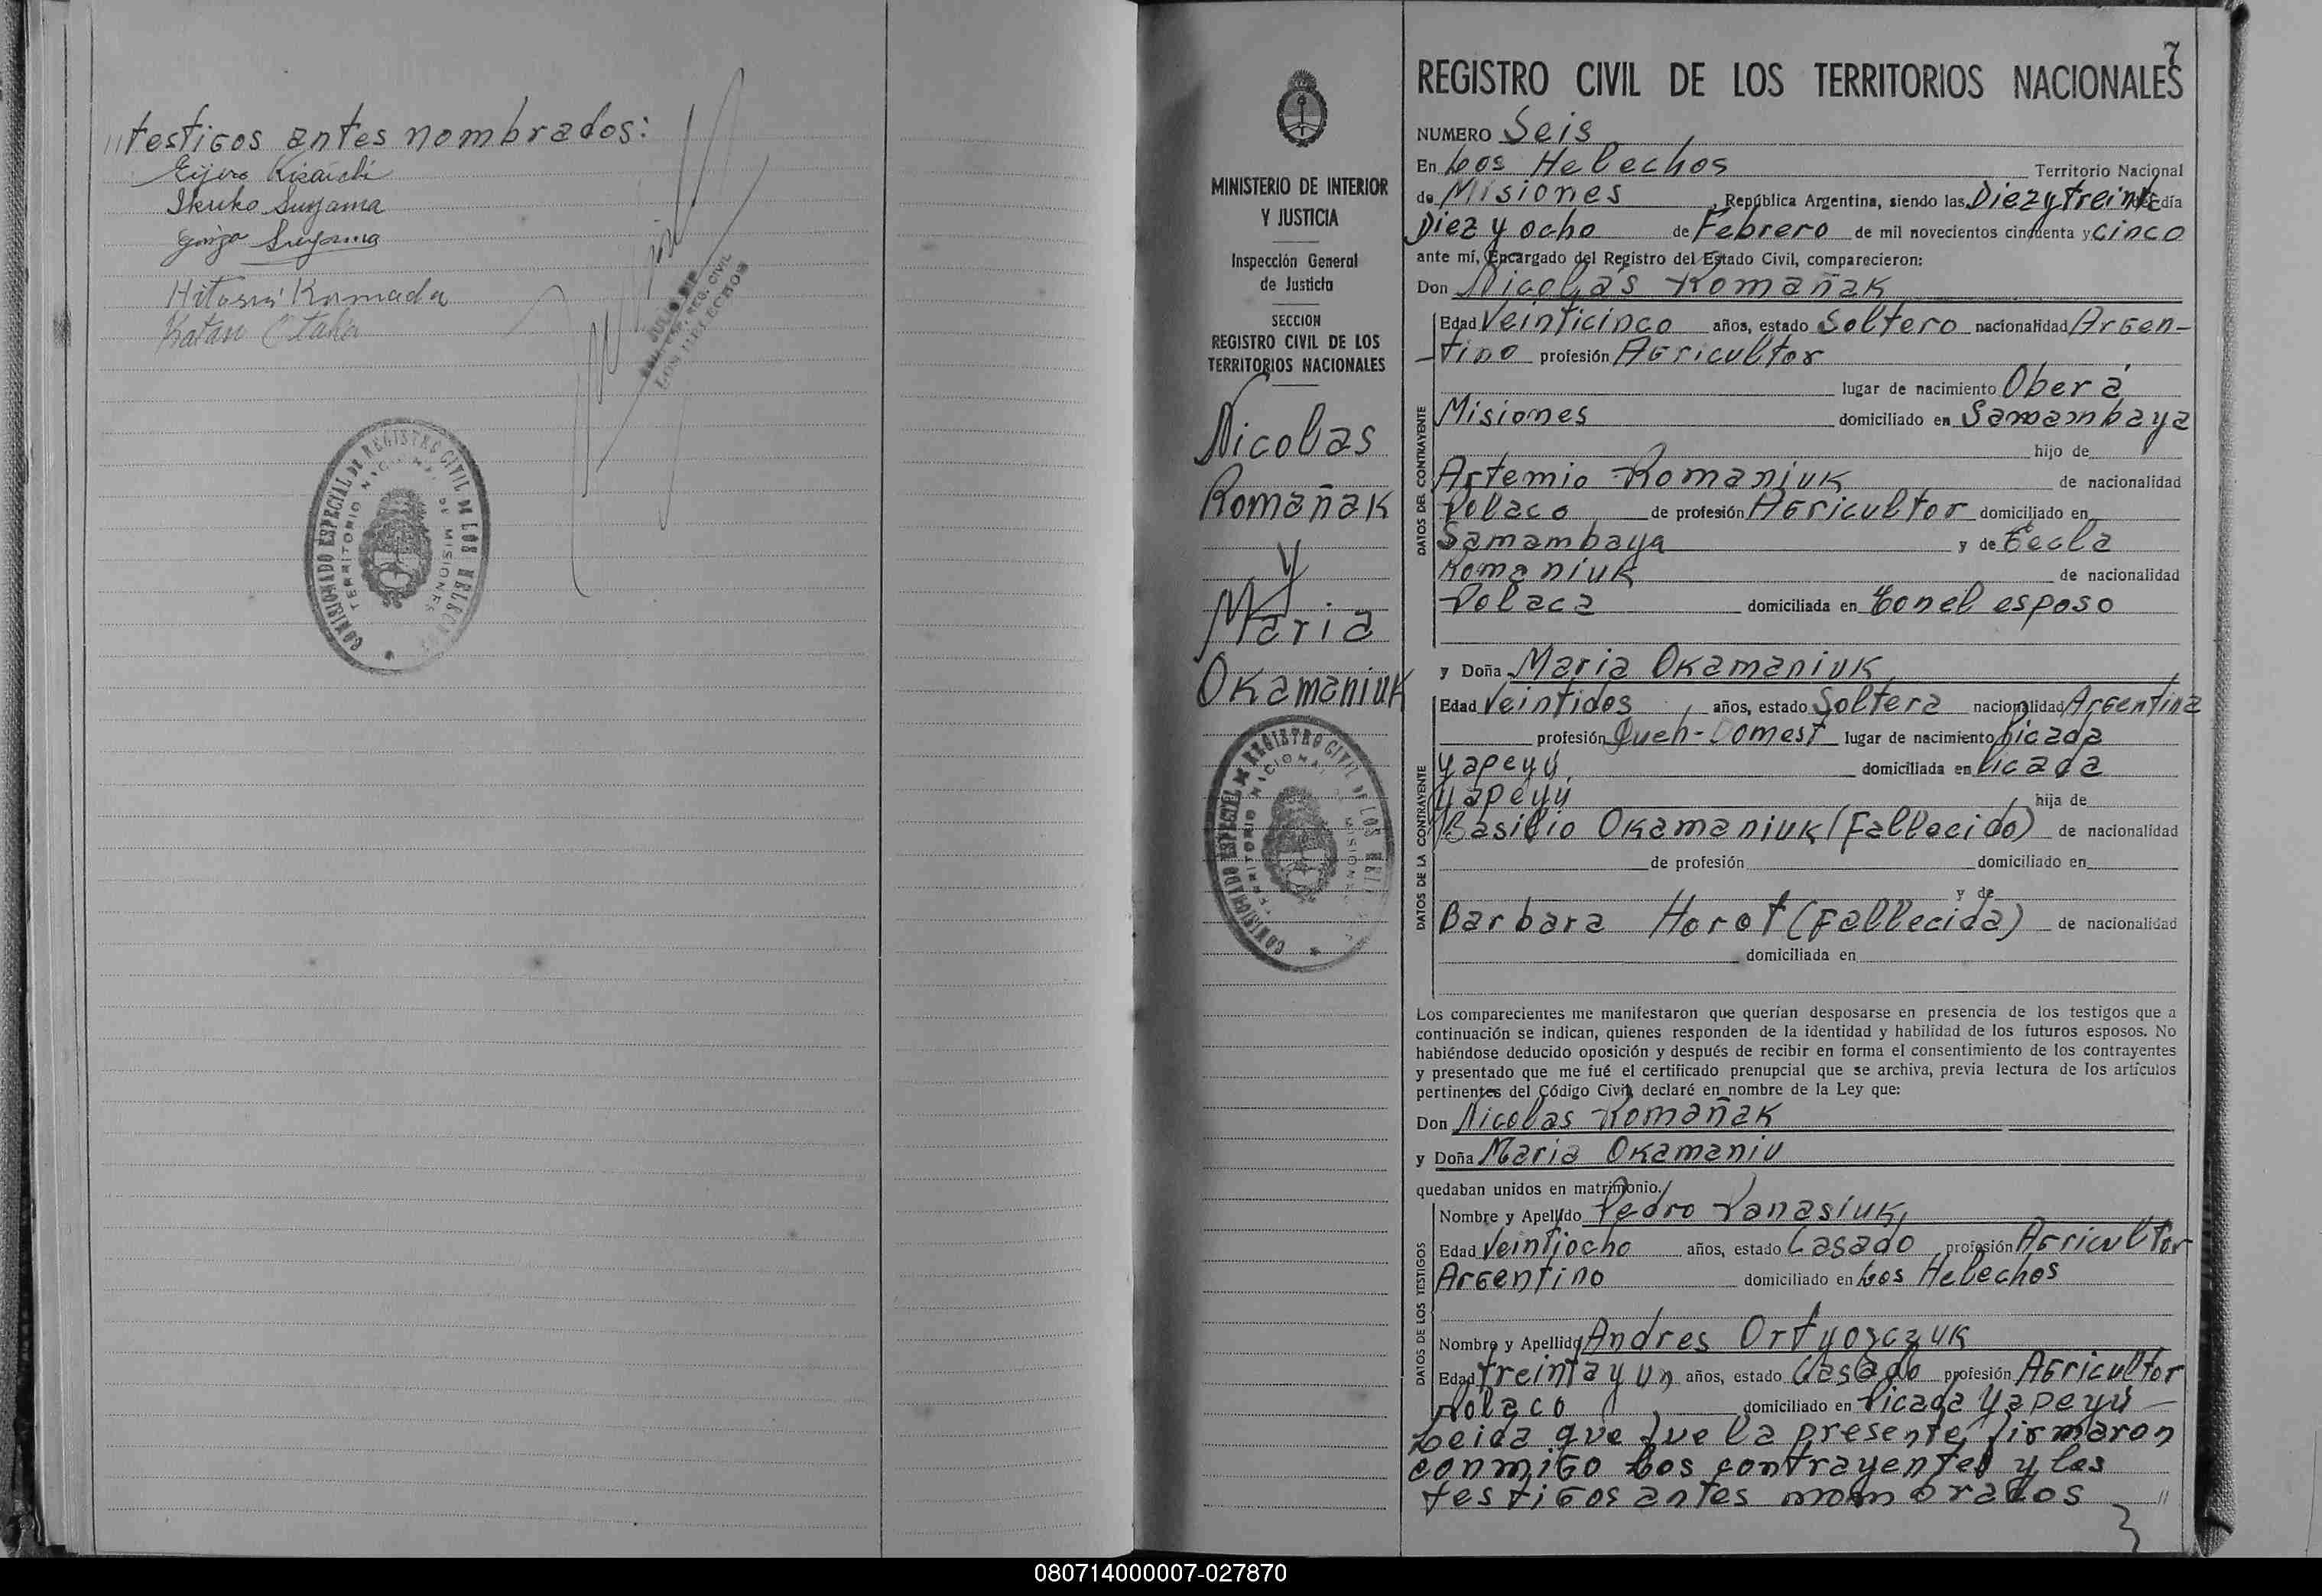 "testigos antes nombrados:
Eijero Kisaichi
Ikuko Suyama
Suyama
Hitosi Kamada
JULIO
REG. CIVIL
LOS HELECHOS
COMISIONADO ESPECIAL DE REGISTRO CIVIL DE LOS HELECHOS
TERRITORIO NACIONAL DE MISIONES
MINISTERIO DE INTERIOR
Y JUSTICIA
Inspección General
de Justicia
SECCION
REGISTRO CIVIL DE LOS
TERRITORIOS NACIONALES
Nicolas
Romañak
y
Maria
Okamaniuk
COMISIONADO ESPECIAL DE REGISTRO CIVIL DE LOS HELECHOS
TERRITORIO NACIONAL DE MISIONES
7
REGISTRO CIVIL DE LOS TERRITORIOS NACIONALES
NUMERO Seis
En Los Helechos Territorio Nacional
de Misiones, República Argentina, siendo las Diez y treinta día
Diez y ocho de Febrero de mil novecientos cincuenta y cinco
ante mí, Encargado del Registro del Estado Civil, comparecieron:
Don Nicolás Romañak
DATOS DEL CONTRAYENTE
Edad Veinticinco años, estado Soltero nacionalidad Argen-
-tino profesión Agricultor
lugar de nacimiento Oberá
Misiones domiciliado en Samambaya
hijo de
Artemio Romaniuk de nacionalidad
Polaco de profesión Agricultor domiciliado en
Samambaya y de Tecla
Romaniuk de nacionalidad
Polaca domiciliada en Con el esposo
y Doña Maria Okamaniuk
DATOS DE LA CONTRAYENTE
Edad Veintidos años, estado Soltera nacionalidad Argentina
profesión Queh-Domest lugar de nacimiento Picada
Yapeyú domiciliada en Picada
Yapeyú hija de
Basilio Okamaniuk (Fallecido) de nacionalidad
de profesión domiciliado en
y de
Barbara Horot (Fallecida) de nacionalidad
domiciliada en
Los comparecientes me manifestaron que querían desposarse en presencia de los testigos que a
continuación se indican, quienes responden de la identidad y habilidad de los futuros esposos. No
habiéndose deducido oposición y después de recibir en forma el consentimiento de los contrayentes
y presentado que me fué el certificado prenupcial que se archiva, previa lectura de los artículos
pertinentes del Código Civil, declaré en nombre de la Ley que:
Don Nicolas Romañak
y Doña Maria Okamaniu
quedaban unidos en matrimonio.
DATOS DE LOS TESTIGOS
Nombre y Apellido Pedro Panasiuk
Edad Veintiocho años, estado Casado profesión Agricultor
Argentino domiciliado en Los Helechos
Nombre y Apellido Andres Ortyosczuk
Edad treinta y un años, estado Casado profesión Agricultor
Polaco domiciliado en Picada Yapeyú
Leida que fue la presente, firmaron
conmigo los contrayentes y los
testigos antes nombrados "
080714000007-027870